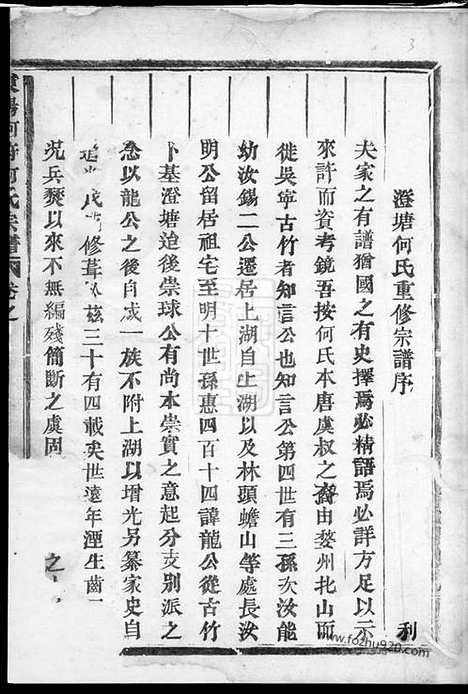 澄塘何氏重修宗譜序
夫家之有譜猶國之有史擇焉必精語焉必詳方足以示
來許而資考鏡吾按何氏本唐虞叔之裔由婺州北山而
徙吳寧古竹者知言公也知言公第四世有三孫次汝能
幼汝錫二公遷居上湖自上湖以及林頭蟾山等處長汝
明公留居祖宅至明十世孫惠四百十四諱龍公從古竹
卜基澄塘迨後崇球公有尚本崇實之意起分支別派之
念以龍公之後自成一族不附上湖以增光另纂家史自
修葺茲三十有四載矣世遠年湮生齒
況兵燹以來不無編殘簡斷之虞固
之
利
何氏宗譜
卷之
3
www.fozhu920.com